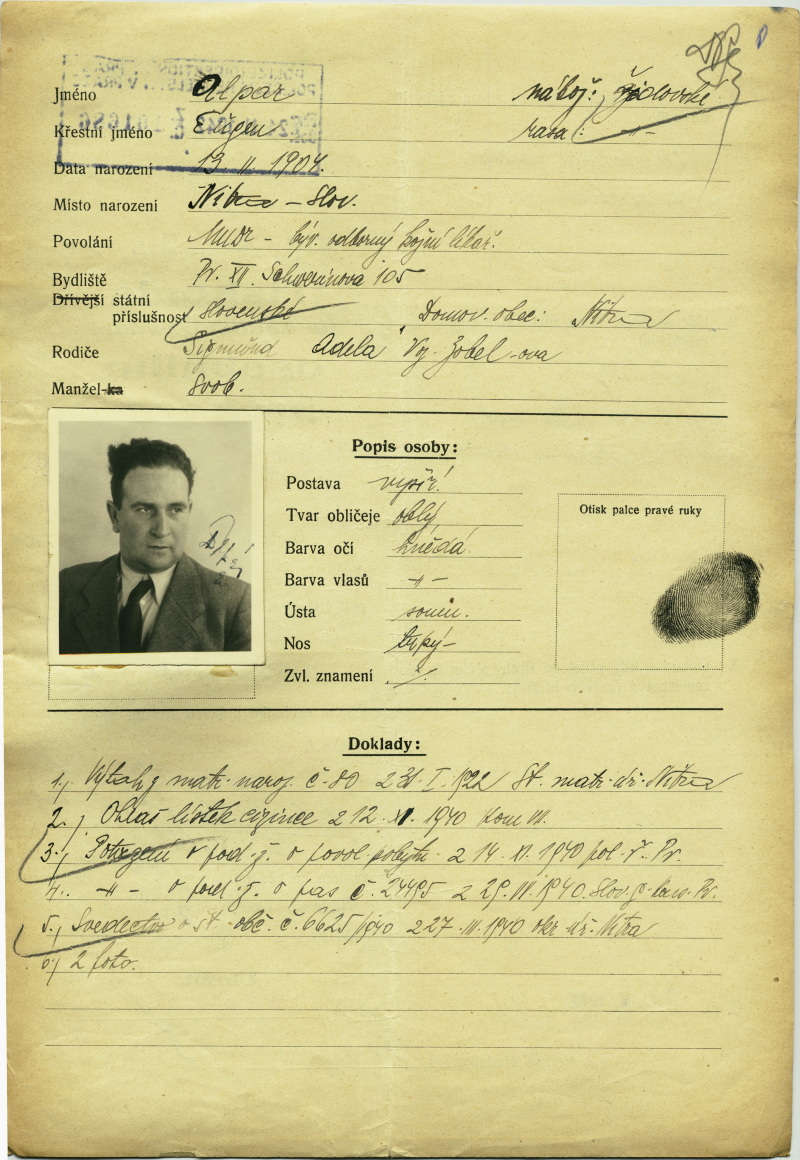 Jméno Alpar nábož: židovské
Křestní jméno Eugen rasa: -"-
Data narození 13. II. 1904.
Místo narození Nitra - Slov.
Povolání MUDr - býv. odborný kožní lékař.
Bydliště Pr. XII. Schwerinova 105
Dřívější státní
příslušnost Slovenské Domov. obec: Nitra
Rodiče Sigmund Adela Žobel-ova
Manžel-ka svob.
Popis osoby:
Postava vyšší
Tvar obličeje oblý
Barva očí hnědá
Barva vlasů -"-
Ústa soum.
Nos
Zvl. znamení ./.
Otisk palce pravé ruky
Doklady:
1.) Výtah z matr. naroz. č. 80 z 31. I. 1922 St. matr. úř. Nitra
2.) Ohlaš lístek cizince z 12. 1940
3.) Potvrzení o pod. ž. o povol pobytu z 14. XI. 1940 pol. ř. Pr.
4.) -"- o pod. ž. o pas č. 24495 z 29. 1940. Slov. Pr.
5.) Svedectvo o st. obč. č. 6625/1940 z 27. III. 1940 okr. úř. Nitra
6.) 2 foto.